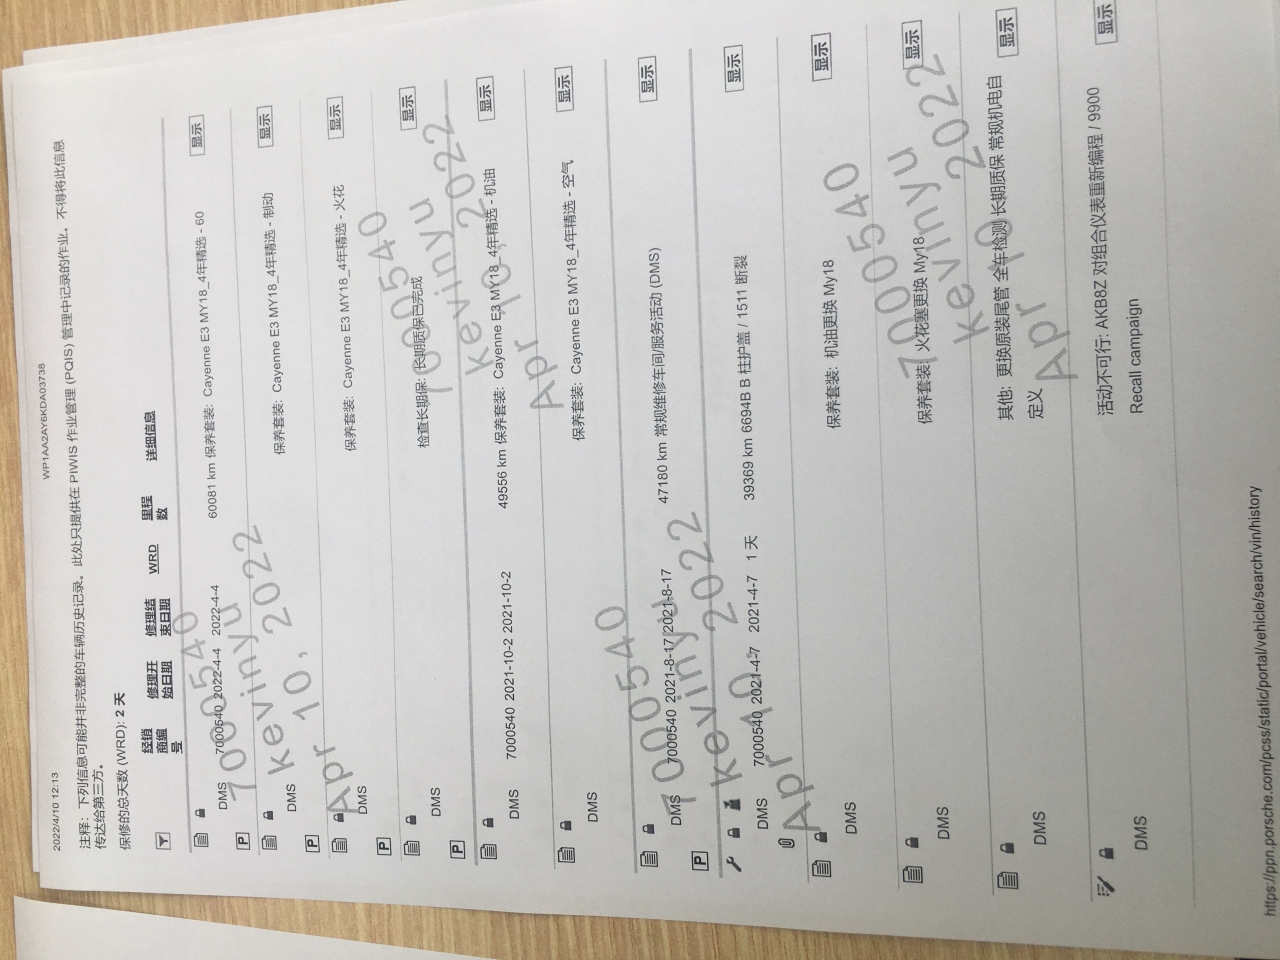 2022/4/10 12:13
WP1AA2AY6KDA03738
注释: 下列信息可能并非完整的车辆历史记录。此处只提供在 PIWIS 作业管理 (PQIS) 管理中记录的作业。不得将此信息
传达给第三方。
保修的总天数 (WRD): 2 天
经销商编号 修理开始日期 修理结束日期 WRD 里程数 详细信息
DMS 7000540 2022-4-4 2022-4-4 60081 km 保养套装: Cayenne E3 MY18_4年精选 - 60 显示
P
DMS 保养套装: Cayenne E3 MY18_4年精选 - 制动 显示
P
DMS 保养套装: Cayenne E3 MY18_4年精选 - 火花 显示
P
DMS 检查长期保: 长期质保已完成 显示
P
DMS 7000540 2021-10-2 2021-10-2 49556 km 保养套装: Cayenne E3 MY18_4年精选 - 机油 显示
DMS 保养套装: Cayenne E3 MY18_4年精选 - 空气 显示
DMS 7000540 2021-8-17 2021-8-17 47180 km 常规维修车间/服务活动 (DMS) 显示
P
DMS 7000540 2021-4-7 2021-4-7 1 天 39369 km 6694B B 柱护盖 / 1511 断裂 显示
DMS 保养套装: 机油更换 My18 显示
DMS 保养套装: 火花塞更换 My18 显示
DMS 其他: 更换原装尾管 全车检测 长期质保 常规机电自 显示
定义
DMS 活动不可行: AKB8Z 对组合仪表重新编程 / 9900 显示
Recall campaign
7000540
kevinyu
Apr 10, 2022
7000540
kevinyu
Apr 10, 2022
7000540
kevinyu
Apr 10, 2022
7000540
kevinyu
Apr 10, 2022
https://ppn.porsche.com/pcss/static/portal/vehicle/search/vin/history